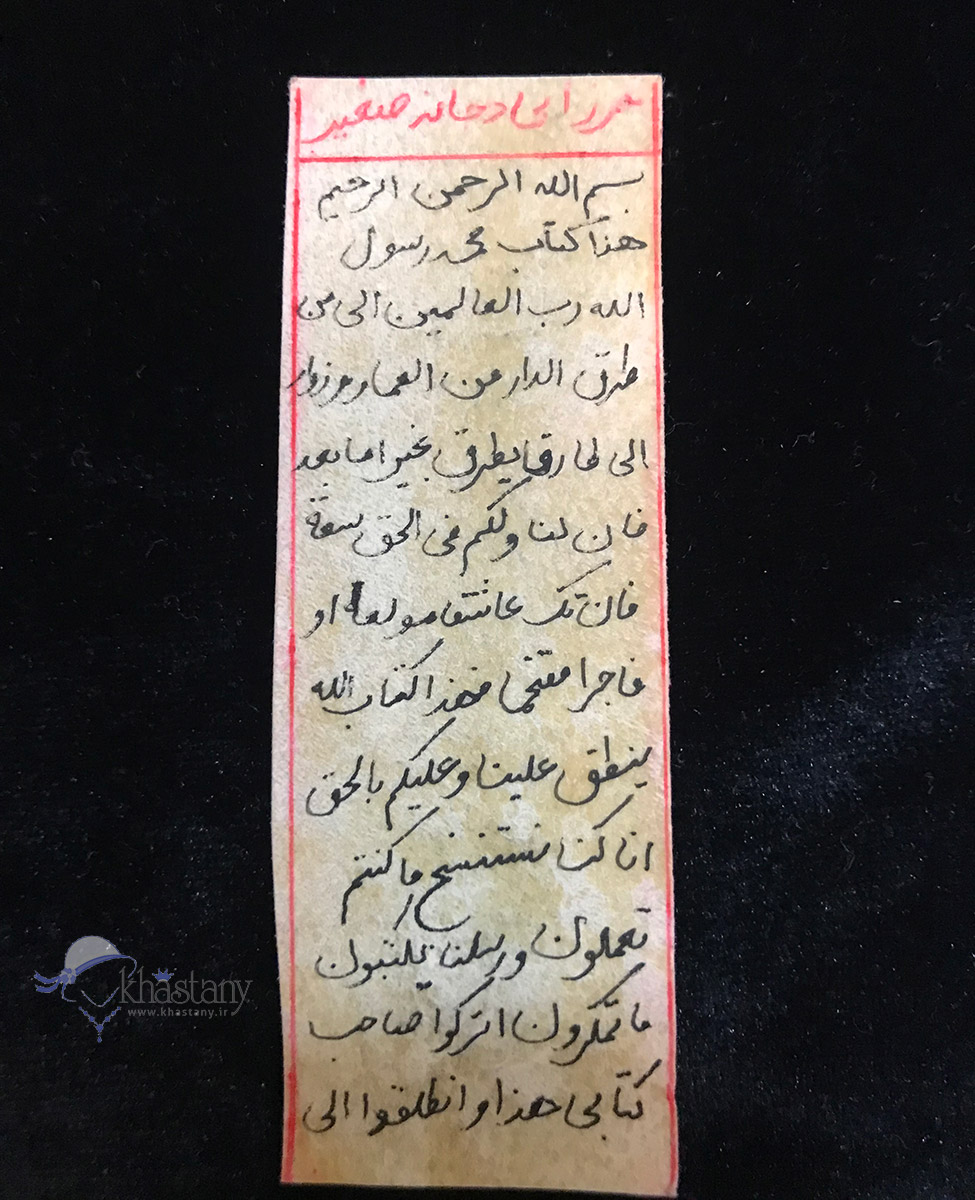 حرز ابی دجانه صغیر
بسم الله الرحمن الرحیم
هذا کتاب محمد رسول
الله رب العالمین الی من
طرق الدار من العمار و زوار
الی طارقا یطرق بخیر اما بعد
فان لنا ولکم فی الحق سعة
فان تک عاشقا مولعا او
فاجرا مقتحما فهذا کتاب الله
ینطق علینا وعلیکم بالحق
انا کنا نستنسخ ما کنتم
تعملون ورسلنا یکتبون
ما تمکرون اترکوا صاحب
کتابی هذا و انطلقوا الی
khastany
www.khastany.ir